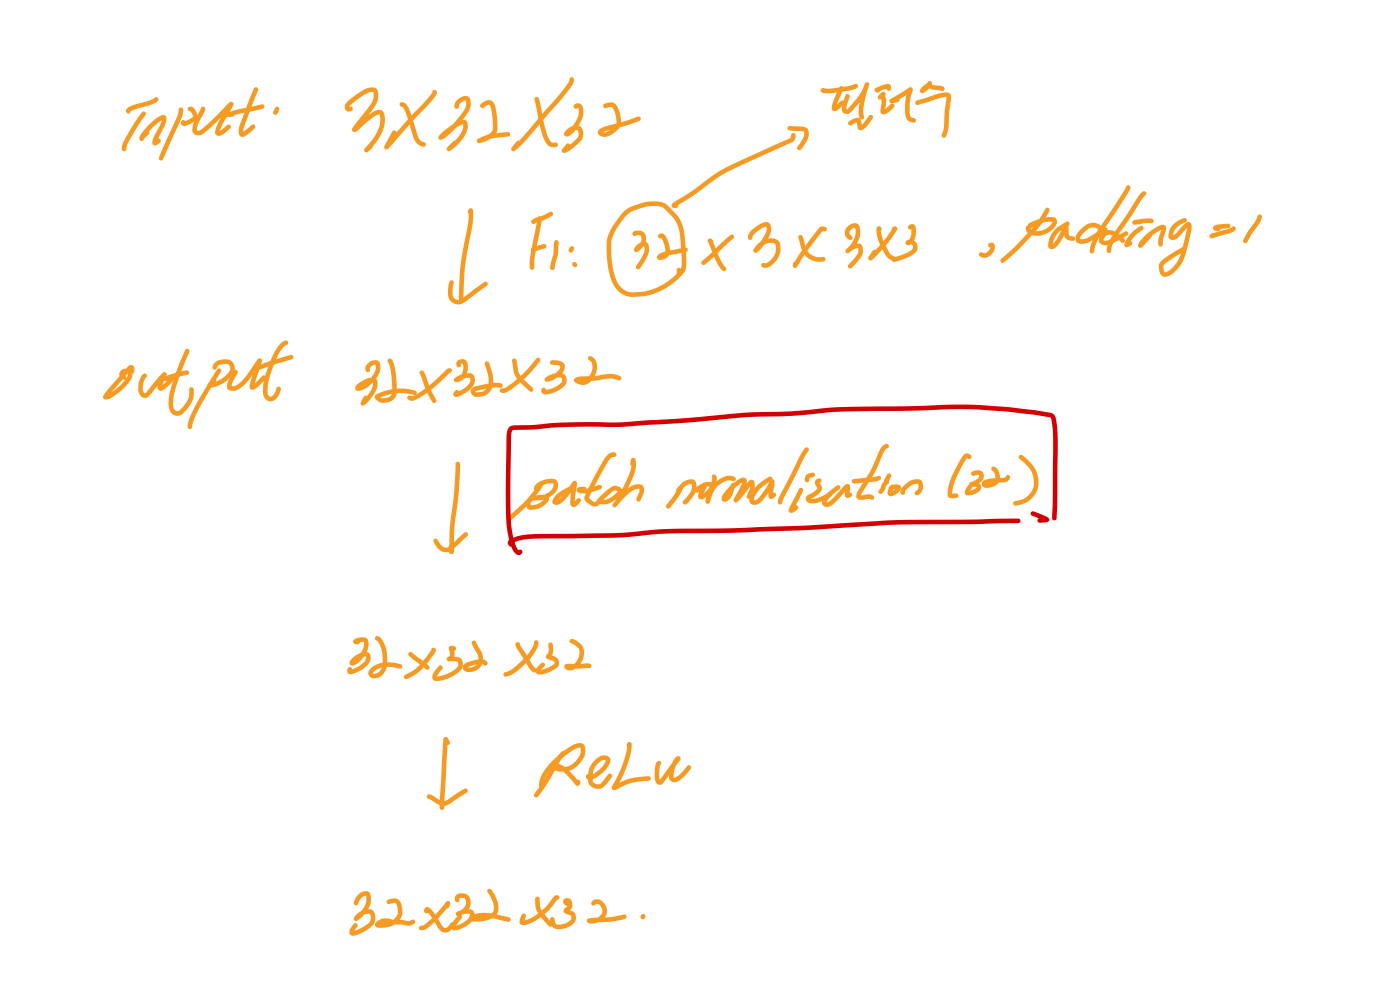 Input. 3X32X32
필터수
F1: 32 x 3 x 3x3 , padding = 1
output 32x32x32
Batch normalization (32)
32x32 x32
ReLu
32x32 x32.